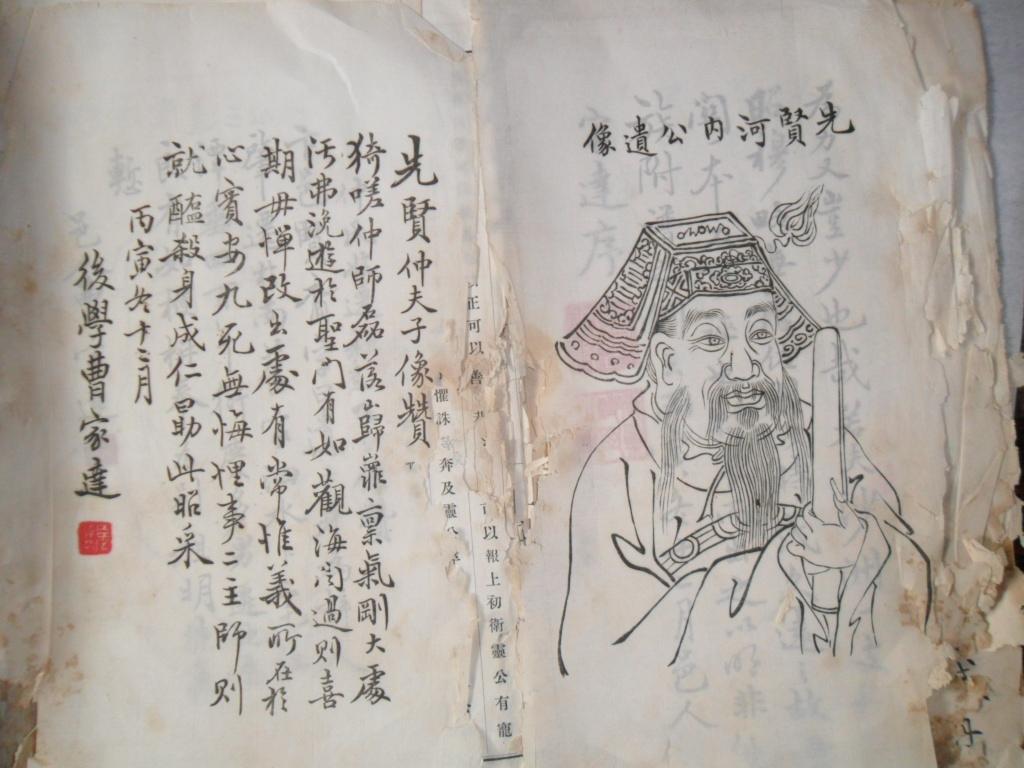 先賢河內公遺像
正可以善 可以報上初衛靈公有寵
懼誅 奔及靈
先賢仲夫子像贊
猗嗟仲師磊落巋 稟氣剛大處
污弗浼遊於聖門有如觀海聞過則喜
期毋憚改出處有常惟義所在於
心實安九死無悔悝事二主師則
就醢殺身成仁勗此昭采
丙寅冬十二月
後學曹家達